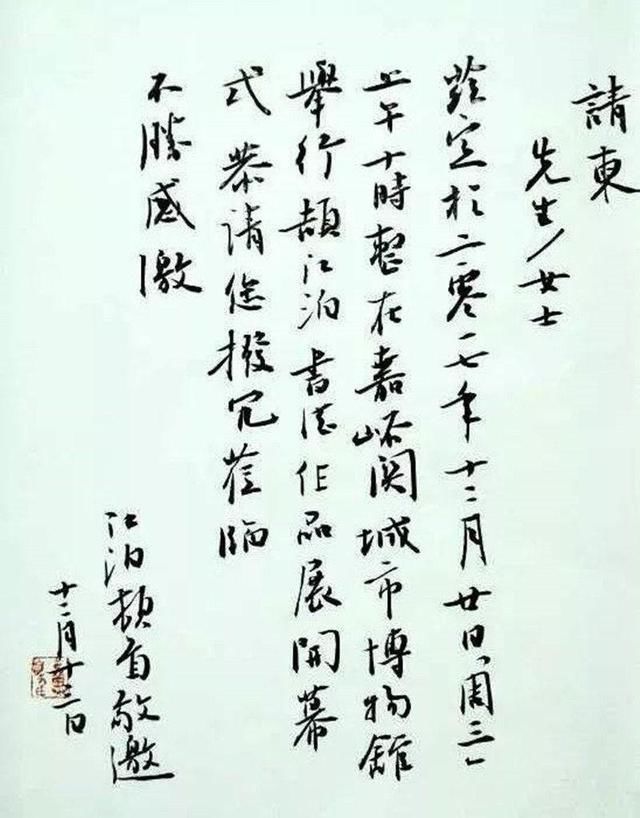 請柬
先生/女士
茲定於二零一七年十二月廿日(周三)
上午十時整在嘉峪関城市博物舘
舉行頡江泊書法作品展開幕
式恭請您撥冗蒞臨
不勝感激
江泊頓首敬邀
十二月十三日